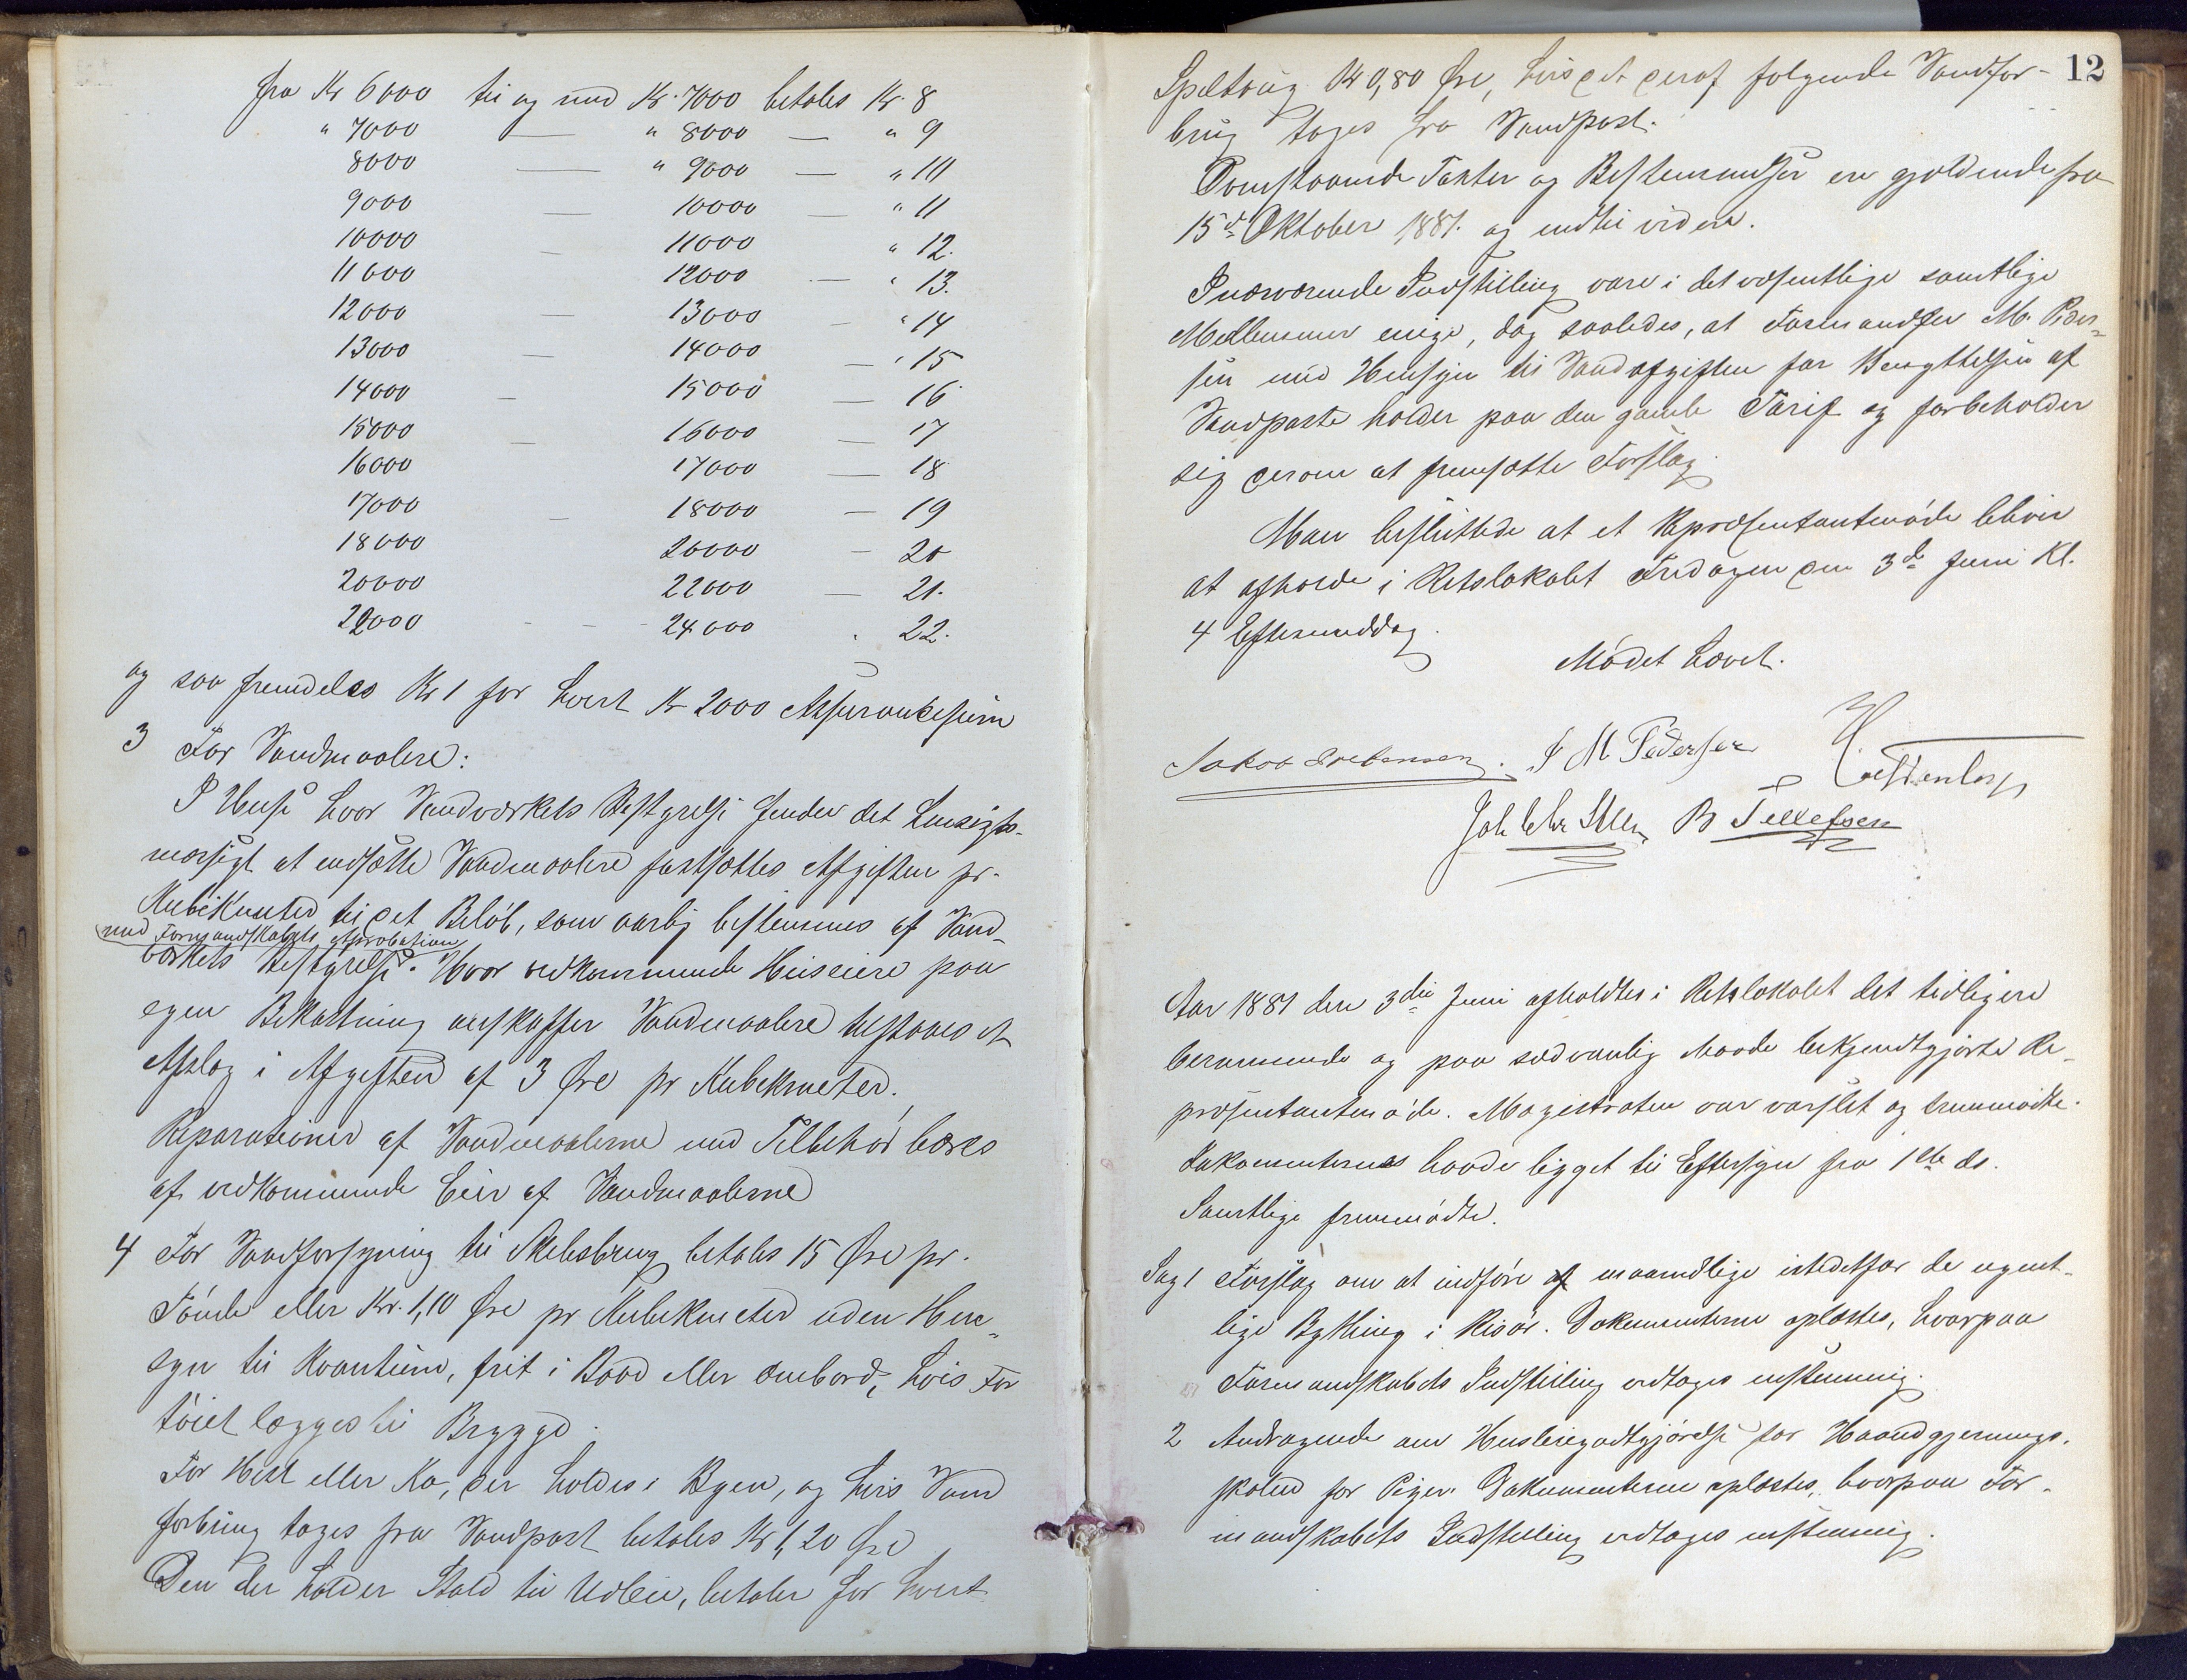 fra Kr 6000 til og med Kr. 7000 betales Kr. 8
" 7000 — " 8000 — " 9
8000 — " 9000 — " 10
9000 — 10000 — " 11
10000 — 11000 " 12.
11000 — 12000 — " 13.
12000 — 13000 — " 14
13000 — 14000 — " 15
14000 — 15000 — 16
15000 — 16000 — 17
16000 17000 — 18
17000 — 18000 — 19
18000 20000 — 20
20000 22000 — 21.
22000 - - - 24000 . 22.
og saa fremdeles Kr 1 for hvert Kr 2000 Assurancesum
3 For Vandmaalere:
I Huse hvor Vandværkets Bestyrelse finder det hensigts-
mæssigt at indsætte Vandmaalere fastsættes Afgiften pr.
Kubikmeter til det Beløb, som aarlig bestemmes af Vand-
med Formandskabets Approbation
værkets Bestyrelse. Hvor vedkommende Huseiere paa
egen Bekostning anskaffer Vandmaalere tilstaaes et
Afslag i Afgiften af 3 Øre pr Kubikmeter.
Reparationer af Vandmaalerne med Tilbehør bæres
af vedkommende Eier af Vandmaalerne
4 For Vandforsyning til Skibsbrug betales 15 Øre pr.
Tønde eller Kr. 1,10 Øre pr Kubikmeter uden Hen-
syn til Kvantum, frit i Baad eller ombord, hvis Far
tøiet lægges til Brygge.
For Hest eller Ko, der holdes i Byen, og hvis Vand
forbrug tages fra Vandpost betales Kr 1,20 Øre
Den der holder Stald til Udleie, betaler for hvert
12
Spiltoug Kr 0,80 Øre, hvis det deraf følgende Vandfor-
brug tages fra Vandpost.
Ovenstaaende Takster og Bestemmelser er gjældende fra
15de Oktober 1881. og indtil videre.
I nærværende Indstilling vare i det væsentlige samtlige
Medlemmer enige, dog saaledes, at Formand M. Peder-
sen med Hensyn til Vandafgiften for Benyttelsen af
Vandposte holder paa den gamle Tarif og forbeholder
sig derom at fremsætte Forslag.
Man besluttede at et Repræsentantmøde bliver
at afholde i Retslokalet Fredagen den 3de Juni Kl.
4 Eftermiddag.
Mødet hævet.
J M Pedersen
B Tellefsen
Aar 1881 den 3die Juni afholdtes i Retslokalet det tidligere
berammede og paa sædvanlig Maade bekjendtgjorte Re-
præsentantmøde. Magistraten var varslet og fremmødte.
Dokumenterne havde ligget til Eftersyn fra 1ste ds.
Samtlige fremmødte.
Sag 1 Forslag om at indføre af maanedlige istedetfor de ugent-
lige Bything i Risør. Dokumenterne oplæstes, hvorpaa
Formandskabets Indstilling vedtoges enstemmig.
2 Andragende om Husleiegodtgjørelse for Haandgjernings-
skolen for Piger. Dokumenterne oplæstes, hvorpaa For-
mandskabets Indstilling vedtoges enstemmig.